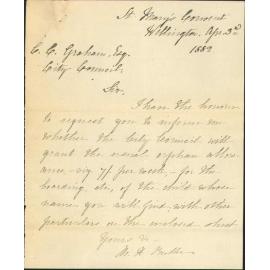 St Mary's Convent
Wellington, Apr. 3rd
1882
C. C. Graham, Esq.
City Council,
Sir,
I have the honour
to request you to inform me
whether the City Council will
grant the usual orphan allow
ance, viz 7/- per week, - for the
boarding, etc, of the child whose
name you will find, with other
particulars on the enclosed sheet
Yours &c
M.